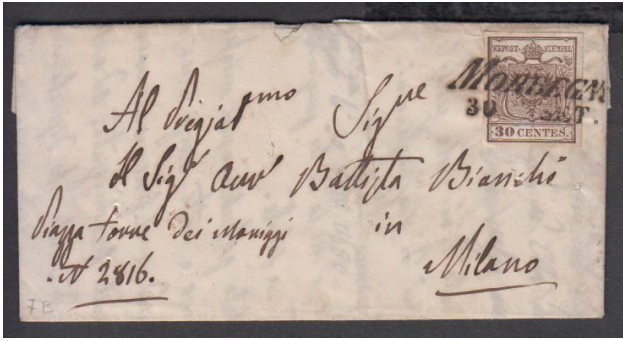 KKPOST-STEMPEL
MORBEGNO
30 SET.
30 CENTES.
Al Pregiat mo Sig re
Il Sigr Avv Battista Bianchi
Piazza Torre dei Moriggi in
N 2816. Milano
7B